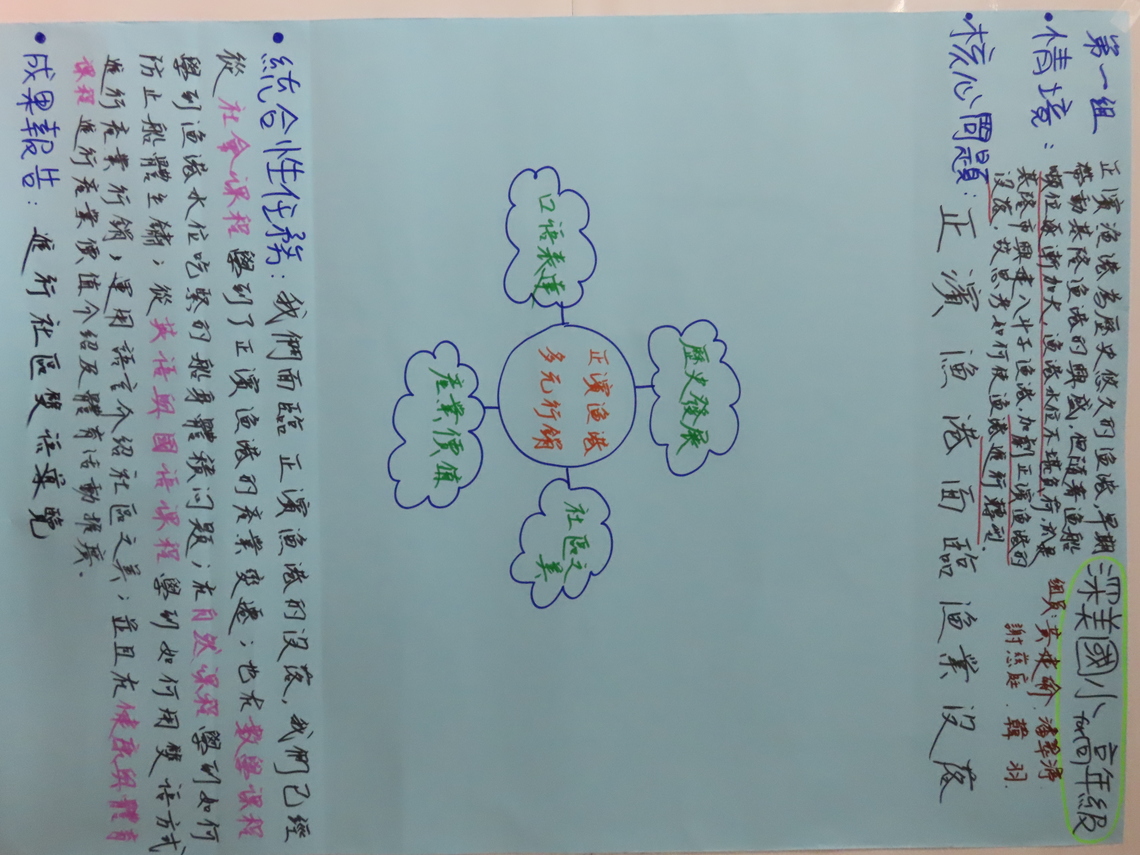 第一組
深美國小 for 高年級
組員:黃建瑜、潘翠 .
謝慈庭.韓羽.
•情境:正濱漁港為歷史悠久的漁港,早期
帶動基隆漁港的興盛,但隨著漁船
順位逐漸加大,漁港水位不堪負荷,於是
基隆市興建八斗子漁港,加劇正濱漁港的
沒落,故思考如何使漁港進行轉型.
•核心問題:正濱漁港面臨漁業沒落
歷史發展
口語表達
正濱漁港
多元行銷
社區之美
產業價值
•統合性任務:我們面臨正濱漁港的沒落,我們已經
從社會課程學到了正濱漁港的產業變遷;也在數學課程
學到漁港水位吃緊的船身體積问題;在自然課程學到如何
防止船體生鏽;從英語與國語課程學到如何用雙语方式
進行產業行銷,運用語言介紹社區之美;並且在健康與體育
課程進行產業價值介紹及體育活動推廣.
•成果報告:進行社區雙语導覽